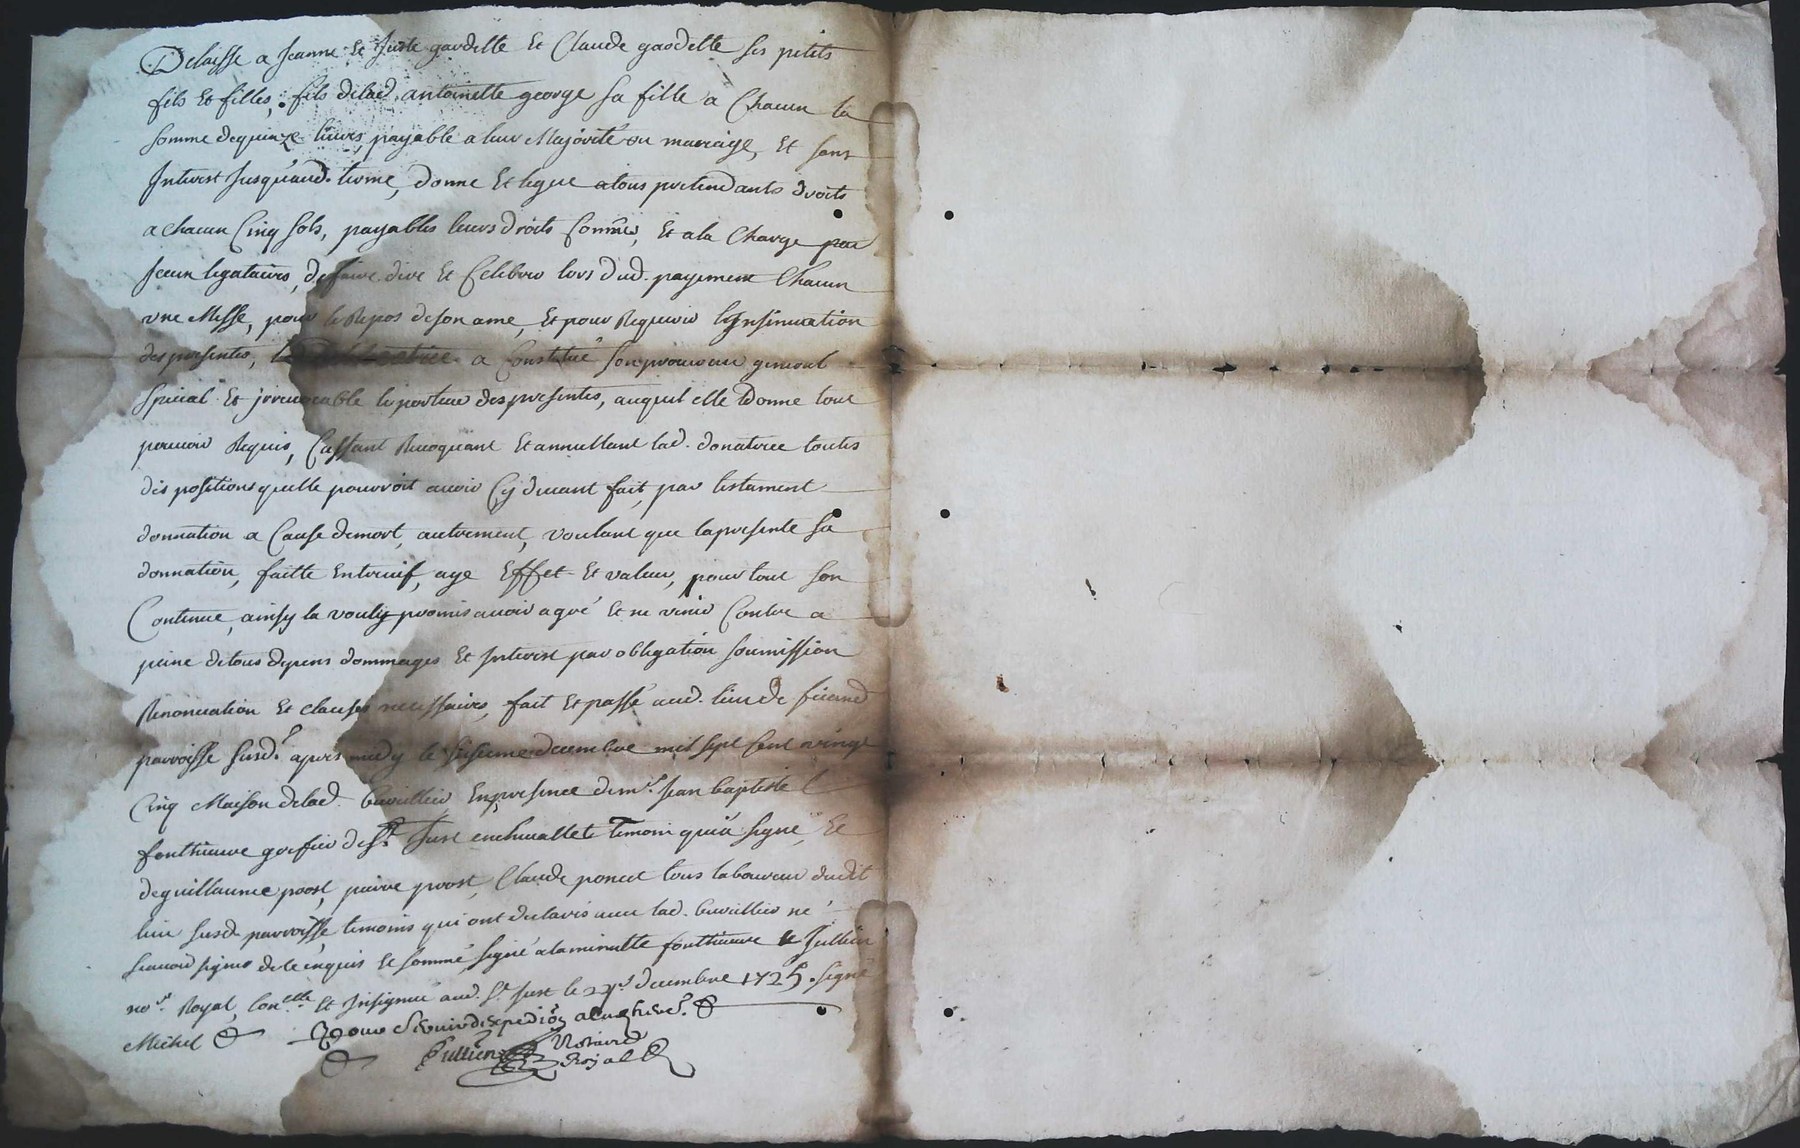 Delaisse a jeanne Et juste gardette Et Claude gardette ses petits
fils Et filles, fils delad. antoinette george sa fille a Chacun la
somme dequinze livres, payable a leur Majorité ou mariage, Et sans
Interest jusqu'aud. terme, donne Et legue atous pretendants droits
a chacun Cinq sols, payables leurs droits Et ala Charge par
legataires, de faire dire Et Celebrer lors dud. payement Chacun
une Messe, pour le Repos deson ame, Et pour Requerir l'Insinuation
des presentes, a Constitué son procureur general
special Et jrrevocable le porteur des presentes, auquel elle Donne tout
pouvoir Requis, Cassant Revoquant Et annullant lad. donatrice touttes
dispositions quelle pourroit avoir Cy devant fait, par testament
donnation a Cause demort, autrement, voulant que lapresente sa
donnation, faitte Entrevif, aye Effet Et valeur, pour tout son
Contenue, ainsy la voulu promis avoir agré Et ne venir Contre a
peine detous depens dommages Et Interest par obligation soumission
Renonciation Et clauses necessaires, fait Et passé aud. lieu de
parroisse susd. apres midy le decembre mil sept cent vingt
Cinq Maison delad. Cuvillier En presence de mr. jean baptiste
fonthieuvre greffier de st. just enchevallet temoin qui a signé, Et
deguillaume proost, pierre proost, Claude poncet tous laboureur dudit
lieu susd. parroisse temoins qui ont avec lad. Cuvillier ne
scavoir signer de ce enquis Et sommé, signé alaminutte fonthieuvre Et Jullien
nore. Royal, Et Insignué aud. st. just le decembre 1725. signé
Michel
Pour servir d'expedition
Jullien Notaire
Royal